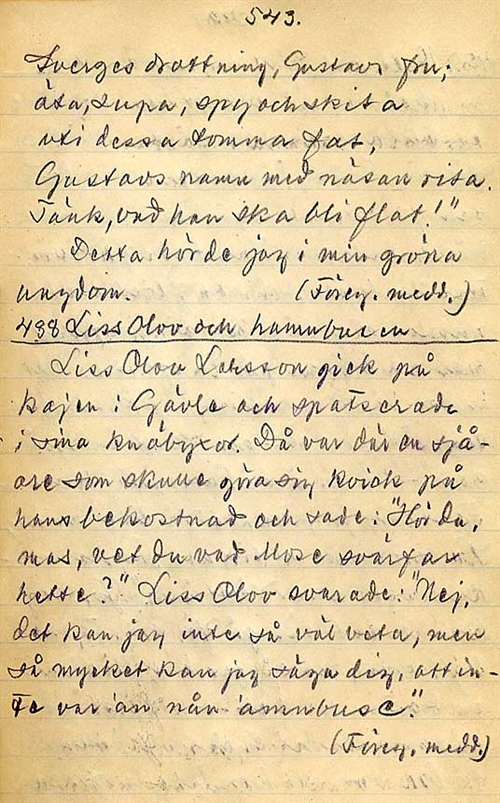 543.
Sverges drottning, Gustavs fru;
äta, supa, spy och skita
uti dessa tomma fat,
Gustavs namn med näsan rita.
Tänk, vad han ska bli flat!"
Detta hörde jag i min gröna
ungdom. (Föreg. medd.)
488 Liss Olov och hamnbusen
Liss Olov Larsson gick på
kajen i Gävle och spatserade
i sina knäbyxor. Då var där en sjå-
are som skulle göra sig kvick på
hans bekostnad och sade: "Hör du,
mas, vet du vad Mose svärfar
hette?" Liss Olov svarade: "Nej,
det kan jag inte så väl veta, men
så mycket kan jag säga dig, att in-
te var an nån 'amnbuse."
(Föreg. medd.)